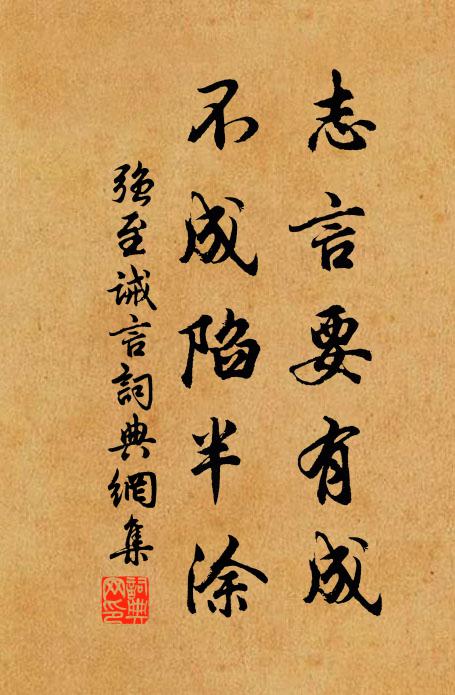 志言要有成
不成陷半涂
强至诫言詞典網集
詞典网印